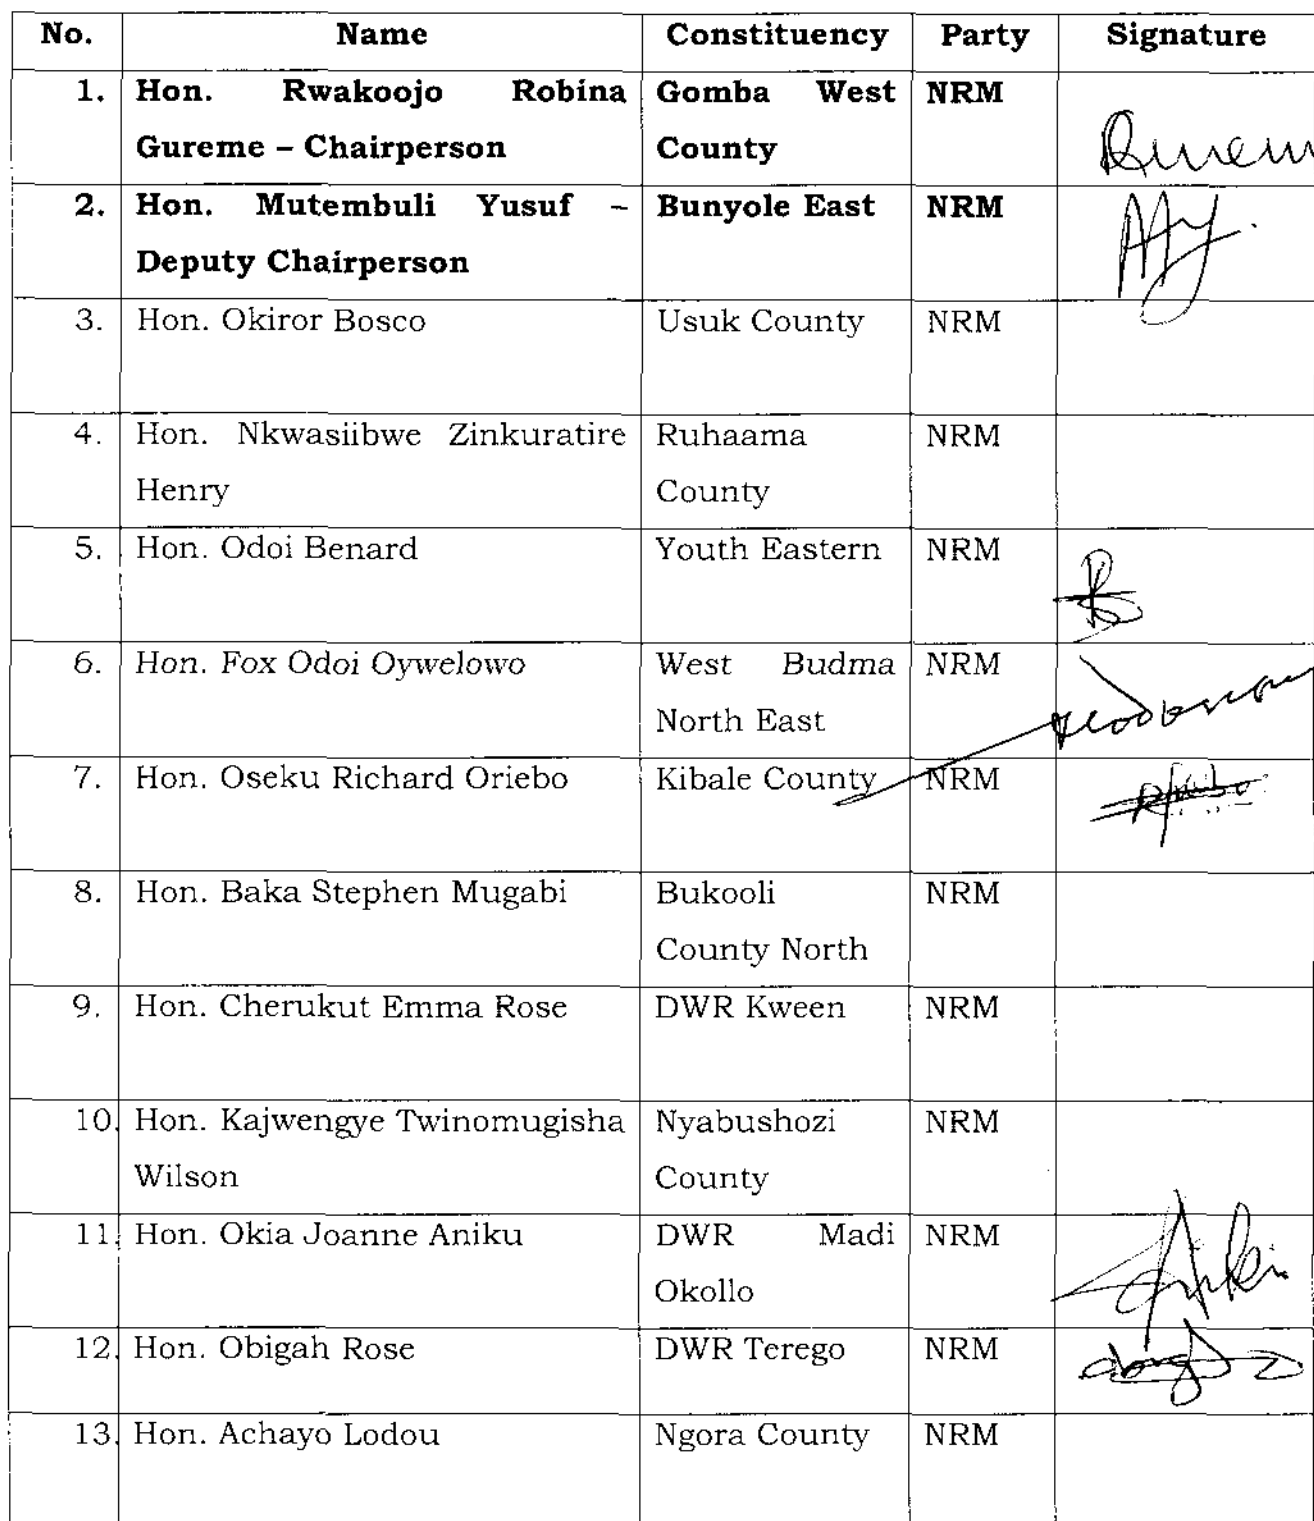 No. Name Constituency Party Signature
1. Hon. Rwakoojo Robina Gomba West NRM
Gureme – Chairperson County
2. Hon. Mutembuli Yusuf – Bunyole East NRM
Deputy Chairperson
3. Hon. Okiror Bosco Usuk County NRM
4. Hon. Nkwasiibwe Zinkuratire Ruhaama NRM
Henry County
5. Hon. Odoi Benard Youth Eastern NRM
6. Hon. Fox Odoi Oywelowo West Budma NRM
North East
7. Hon. Oseku Richard Oriebo Kibale County NRM
8. Hon. Baka Stephen Mugabi Bukooli NRM
County North
9. Hon. Cherukut Emma Rose DWR Kween NRM
10. Hon. Kajwengye Twinomugisha Nyabushozi NRM
Wilson County
11. Hon. Okia Joanne Aniku DWR Madi NRM
Okollo
12. Hon. Obigah Rose DWR Terego NRM
13. Hon. Achayo Lodou Ngora County NRM